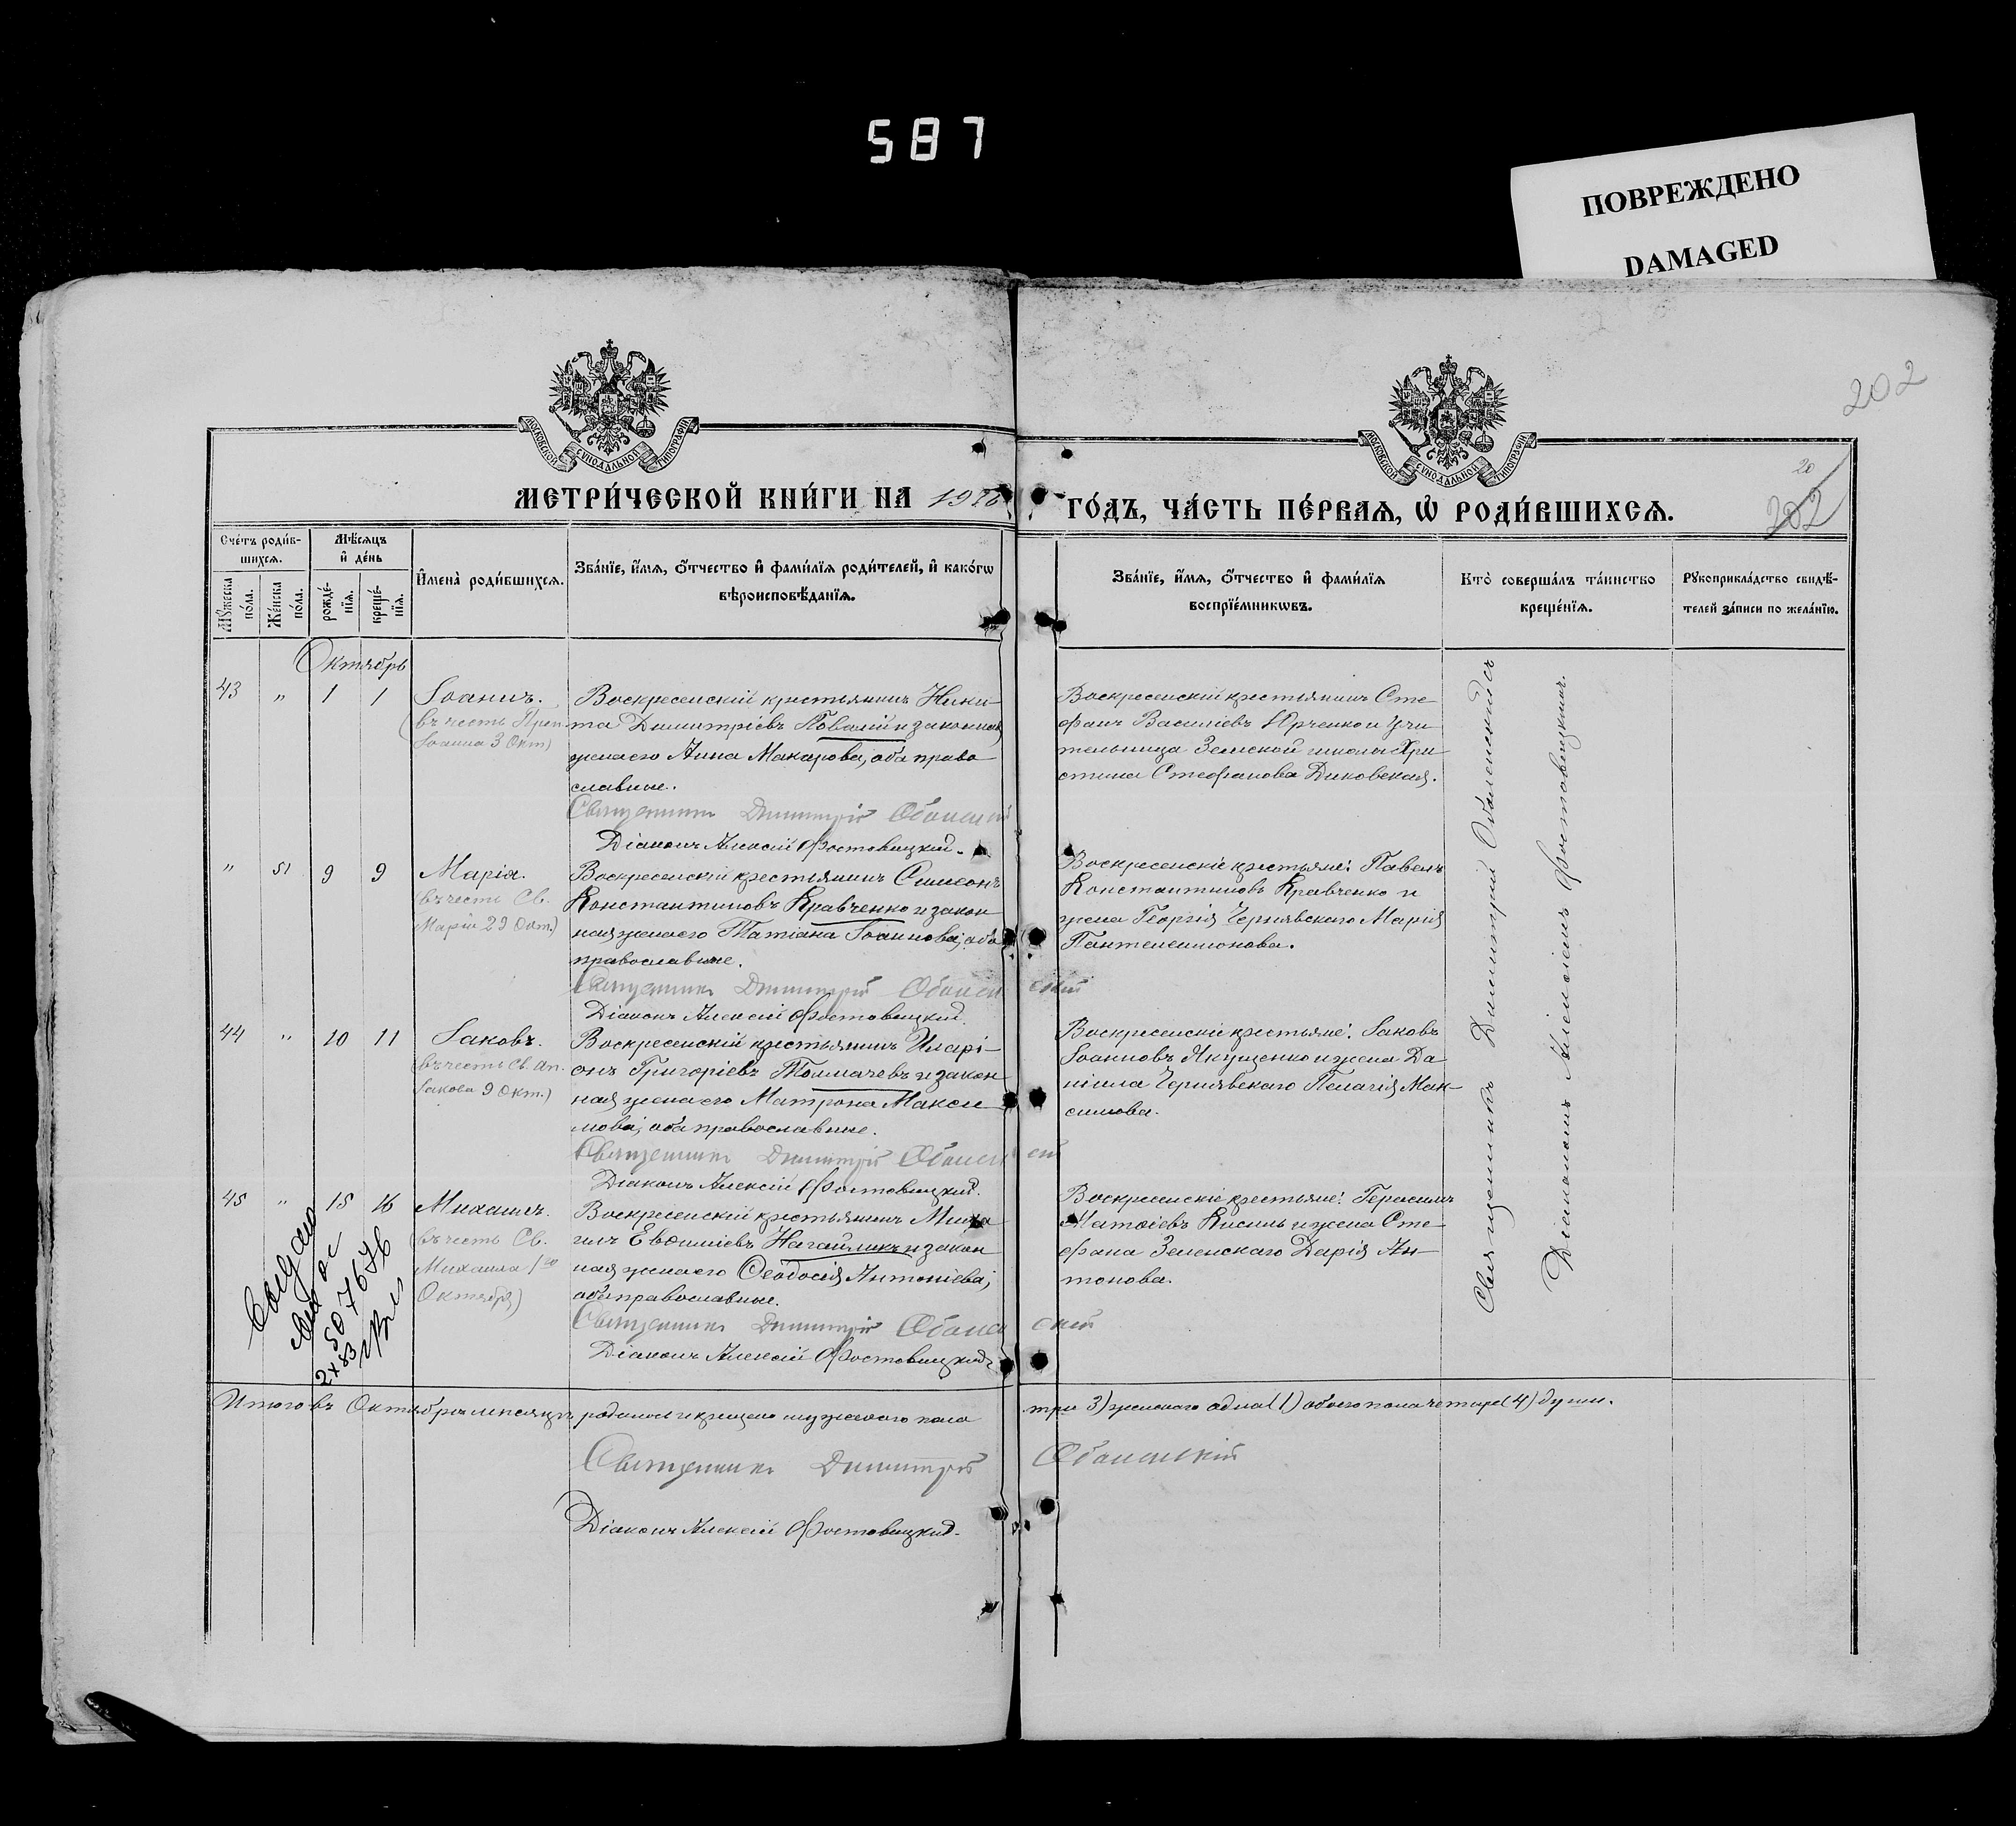 587
ПОВРЕЖДЕНО
DAMAGED
202
МОСКОВСКОЙ СѴНОДАЛЬНОЙ ТИПОГРАФІИ
МОСКОВСКОЙ СѴНОДАЛЬНОЙ ТИПОГРАФІИ
20
202
МЕТРИ́ЧЕСКОЙ КНИ́ГИ НА
ГО́ДЪ, ЧА́СТЬ ПЕ́РВАѦ, Ѽ РОДИ́ВШИХСѦ.
Сче́тъ роди́в-
шихсѧ.
Мꙋ́жеска
по́ла.
Же́нска
по́ла.
Мѣ́сѧцъ
и҆ де́нь
рожде́-
нїѧ.
креще́-
нїѧ.
И҆мена̀ роди́вшихсѧ.
Зва́нїе, и҆́мѧ, ѻ҆́тчество и҆ фами́лїѧ роди́телей, и҆ како́гѡ
вѣроисповѣ́данїѧ.
Зва́нїе, и҆́мѧ, ѻ҆́тчество и҆ фами́лїѧ
воспрїе́мникѡвъ.
Кто̀ соверша́лъ та́инство
креще́нїѧ.
Рꙋкоприкла́дство свидѣ́-
телей за́писи по жела́нїю.
Октябрь
43 " 1 1 Іоаннъ.
(въ честь Преп.
Іоанна 3 Окт.)
Воскресенскій крестьянинъ Ники-
та Димитріевъ Повалій и законная
жена его Анна Макарова, оба право
славные.
Священникъ Димитрій Оболенскій
Діаконъ Алексій Фостовицкій.
Воскресенскій крестьянинъ Сте-
фанъ Василіевъ Юрченко и учи
тельница Земской школы Хри
стина Стефанова Диковская.
" 51 9 9 Марія.
(въ честь Св.
Маріи 29 Окт.)
Воскресенскій крестьянинъ Симеонъ
Константиновъ Кравченко и закон
ная жена его Татіана Іоаннова, оба
православные.
Священникъ Димитрій Оболенскій
Діаконъ Алексій Фостовицкій.
Воскресенскіе крестьяне: Павелъ
Константиновъ Кравченко и
жена Георгія Чернявскаго Марія
Пантелеимонова.
44 " 10 11 Іаковъ.
(въ честь Св. Ап.
Іакова 9 Окт.)
Воскресенскій крестьянинъ Иларі-
онъ Григоріевъ Толмачевъ и закон
ная жена его Матрона Макси
мова, оба православные.
Священникъ Димитрій Оболенскій
Діаконъ Алексій Фостовицкій.
Воскресенскіе крестьяне: Іаковъ
Іоанновъ Якущенко и жена Да
ніила Чернявскаго Пелагія Мак-
симова.
45 " 15 16 Михаилъ.
(въ честь Св.
Михаила 1го
Октября)
Воскресенскій крестьянинъ Миха
илъ Евѳиміевъ Нагайникъ и закон
ная жена его Ѳеодосія Антоніева,
оба православные.
Священникъ Димитрій Оболенскій
Діаконъ Алексій Фостовицкій
Воскресенскіе крестьяне: Герасимъ
Матѳіевъ Кисиль и жена Сте-
фана Зеленскаго Дарія Ан-
тонова.
507676
Священникъ Димитрій Оболенскій съ
Діакономъ Алексіемъ Фостовицкимъ.
Итого въ Октябрѣ мѣсяцѣ родилось и крещено мужескаго пола три (3) женскаго одна (1) обоего пола четыре (4) души.
Священникъ Димитрій Оболенскій
Діаконъ Алексій Фостовицкій.